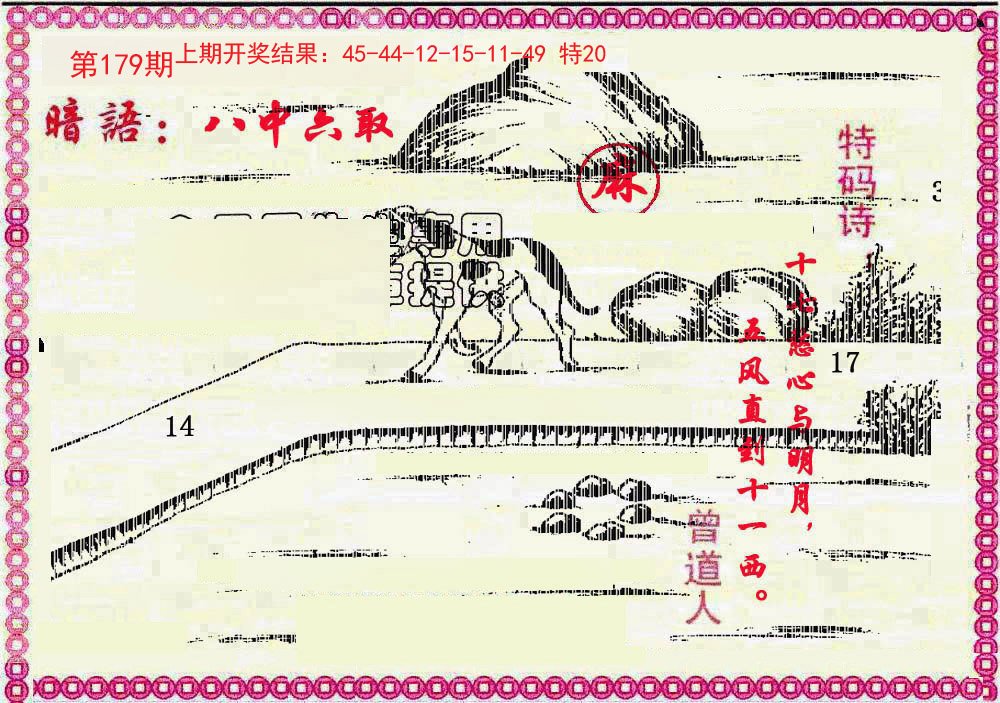 第179期
上期开奖结果：45-44-12-15-11-49 特20
暗語：八中六取
麻
特码诗
3
专用
提供
十心愁心与明月，
五风直到十一西。
17
14
曾道人